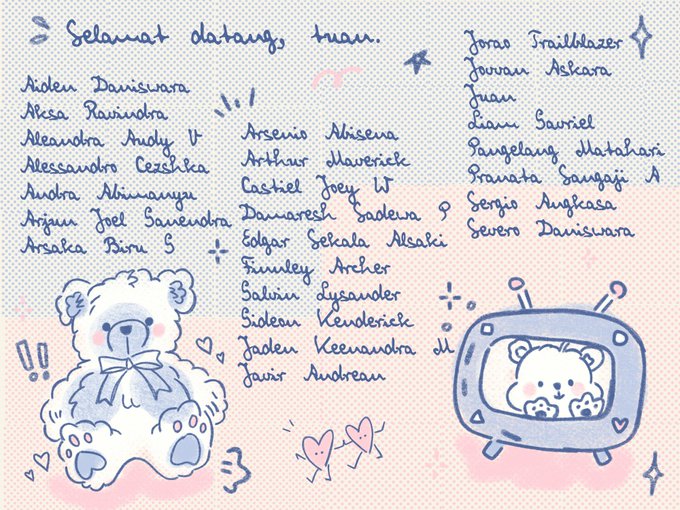 Selamat datang, tuan.
Aiden Daniswara
Aksa Ravindra
Aleandra Audy V
Alessandro Cezshka
Andra Abimanyu
Arjun Joel Sanendra
Arsaka Biru S
Arsenio Abisena
Arthur Maverick
Castiel Joey W
Damaresh Sadewa P
Edgar Sekala Alsaki
Finnley Archer
Galvin Lysander
Gideon Kenderick
Jaden Keenandra M
Javir Andrean
Jorao Trailblazer
Jovvan Askara
Juan
Liam Gavriel
Pangelang Matahari
Pranata Sangaji A
Sergio Angkasa
Severo Daniswara
!!